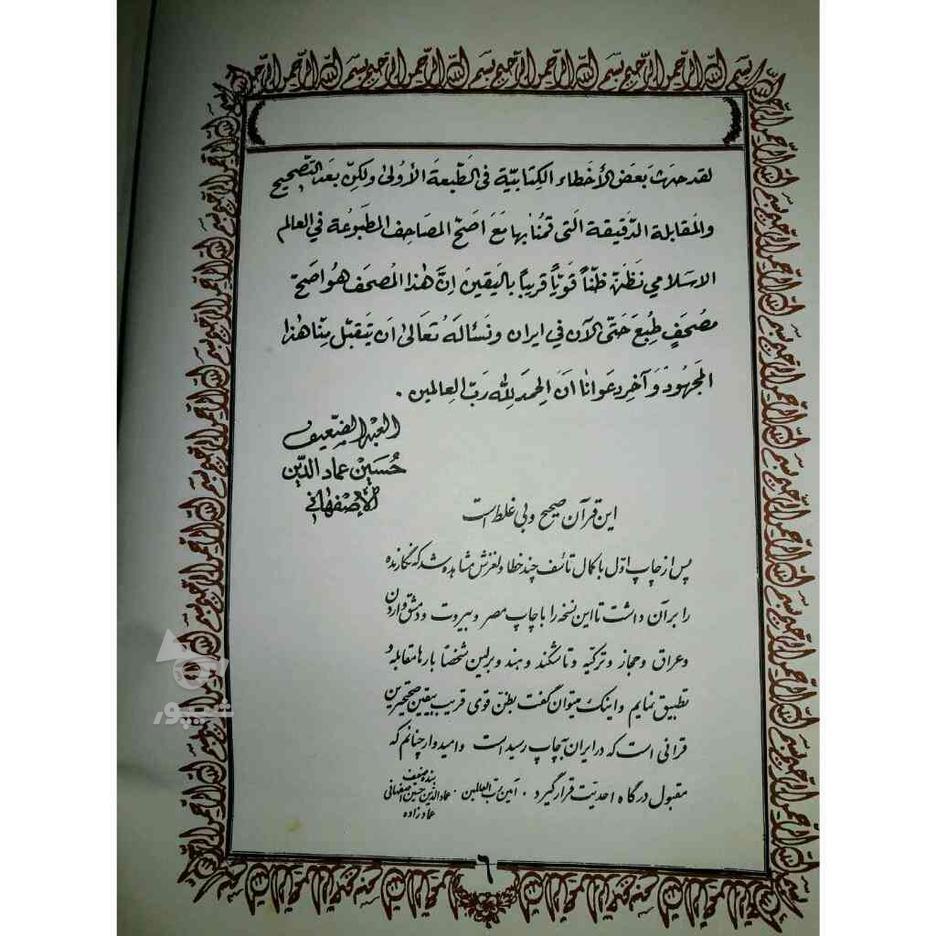 لقد حدث بعض الأخطاء الكتابيّة في الطّبعة الأولىٰ ولكن بعد التّصحيح
والمقابلة الدّقيقة الّتي قمنا بها مع اصحّ المصاحف المطبوعة في العالم
الاسلامي نظنّ ظنّاً قويّاً قريباً باليقين انّ هٰذا المصحف هو اصحّ
مصحفٍ طبع حتّى الآن في ايران ونسأله تعالىٰ ان يتقبّل منّا هٰذا
المجهود وآخر دعوانا ان الحمد لله ربّ العالمين .
العبد الضّعيف
حسين عماد الدّين
الإصفهاني
این قرآن صحیح و بی غلط است
پس از چاپ اوّل با کمال تأسف چند خطا و لغزش مشاهده شد که نگارنده
را بر آن داشت تا این نسخه را با چاپ مصر و بیروت و دمشق و اردن
و عراق و حجاز و ترکیه و تاشکند و هند و برلین شخصاً بارها مقابله و
تطبیق نمایم و اینک میتوان گفت بظن قوی قریب بیقین صحیحترین
قرآنی است که در ایران بچاپ رسیده است و امیدوار چنانم که
مقبول درگاه احدیّت قرار گیرد . آمین ربّ العالمین .
بنده ضعیف
عماد الدین حسین اصفهانی
عمادزاده
٦
شیپور